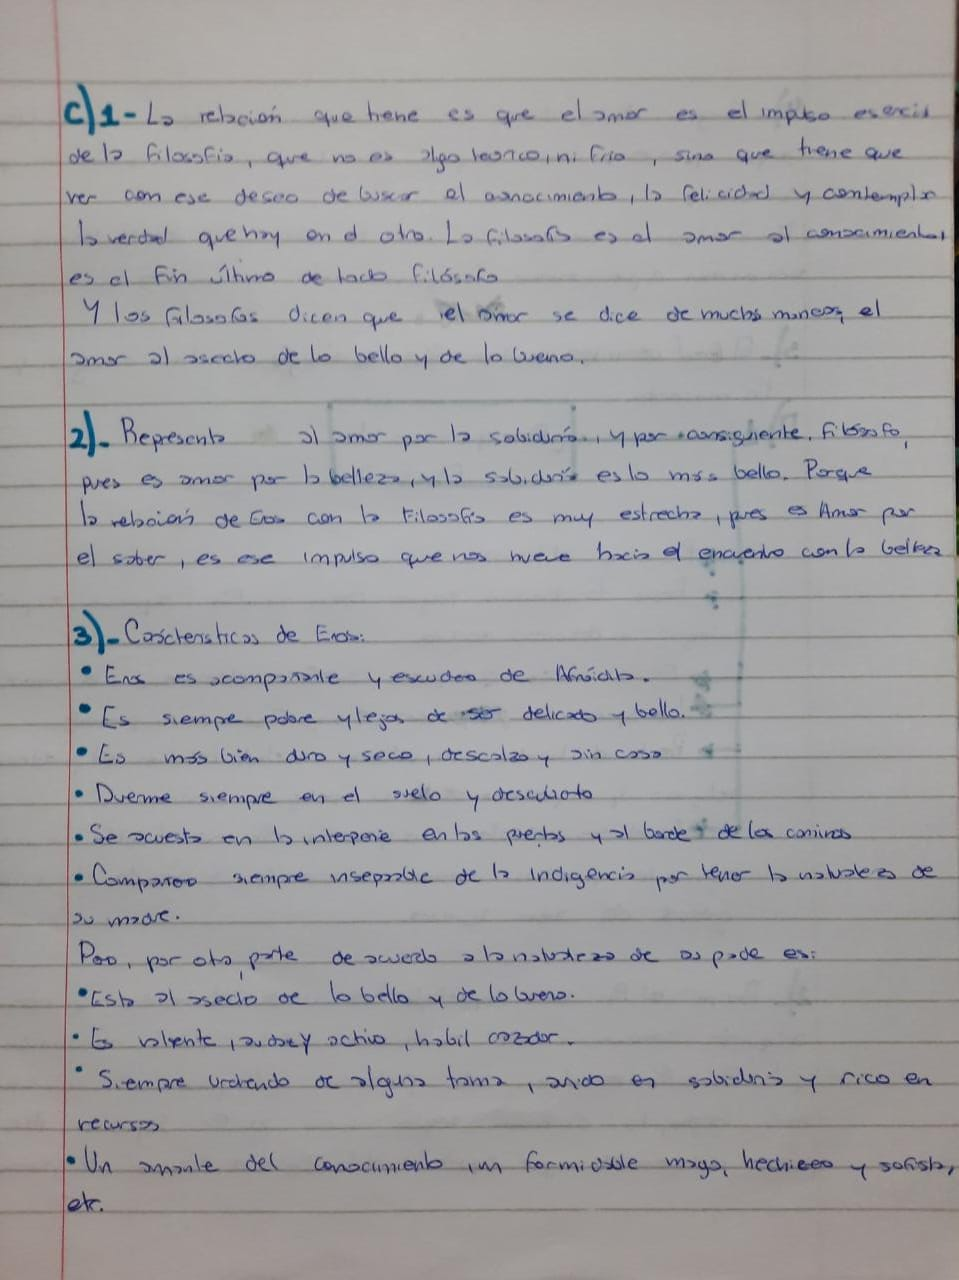 C) 1- La relación que tiene es que el amor es el impulso esencia
de la filosofía, que no es algo teorico, ni frio, sino que tiene que
ver con ese deseo de buscar el conocimiento, la felicidad y contempla
la verdad que hay en el otro. La filosofía es el amor al conocimiento,
es el fin último de todo filósofo
Y los filosofos dicen que el amor se dice de muchas maneras, el
amor al asecho de lo bello y de lo bueno.
2)- Representa al amor por la sabiduría, y por consiguiente, filósofo,
pues es amor por la belleza, y la sabiduría es lo más bello. Porque
la relación de Eros con la Filosofía es muy estrecha, pues es Amor por
el saber, es ese impulso que nos mueve hacia el encuentro con la belleza
3)- Carácteristicas de Eros:
• Eros es acompañante y escudero de Afrodita.
• Es siempre pobre y lejos de ser delicado y bello.
• Es más bien duro y seco, descalzo y sin casa
• Duerme siempre en el suelo y descubierto
• Se acuesta en la interperie en las puertas y al borde de los caminos
• Compañero siempre inseparable de la indigencia por tener la naturaleza de
su madre.
Pero, por otra parte de acuerdo a la naturaleza de su padre es:
• Esta al asecho de lo bello y de lo bueno.
• Es valiente, audaz y activo, habil cazador.
• Siempre urdiendo de alguna trama, avido en sabiduria y rico en
recursos
• Un amante del conocimiento, un formidable mago, hechicero y sofista,
etc.